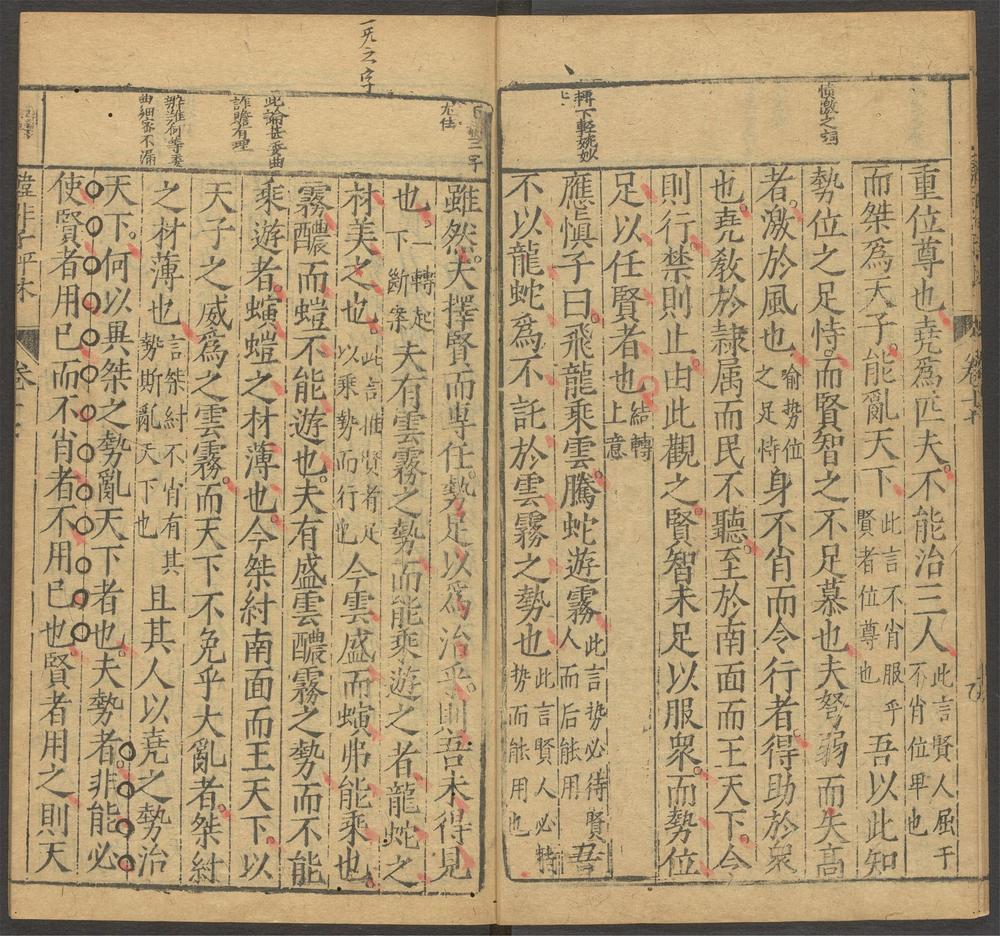 重位尊也堯爲匹夫不能治三人此言賢人屈于不肖位卑也
而桀爲天子能亂天下此言不肖服乎賢者位尊也吾以此知
勢位之足恃而賢智之不足慕也夫弩弱而矢高
者激於風也喻势位之足恃身不肖而令行者得助於衆
也堯敎於隸属而民不聽至於南面而王天下令
則行禁則止由此觀之賢智未足以服衆而勢位
足以任賢者也結轉上意
應愼子曰飛龍乘雲騰蛇遊霧此言势必待賢人而后能用吾
不以龍蛇爲不託於雲霧之勢也此言賢人必恃势而能用也
憤激之詞
轉下輕婉妙
雖然夫擇賢而專任勢足以爲治乎則吾未得見
也一轉起下斷案夫有雲霧之勢而能乘遊之者龍蛇之
材美之也此言惟賢者足以乘勢而行也今雲盛而螾弗能乘也
霧醲而螘不能遊也夫有盛雲醲霧之勢而不能
乘遊者螾螘之材薄也今桀紂南面而王天下以
天子之威爲之雲霧而天下不免乎大亂者桀紂
之材薄也言桀紂不肖有其勢斯亂天下也且其人以堯之勢治
天下何以異桀之勢亂天下者也夫勢者非能必
使賢者用已而不肖者不用已也賢者用之則天
一旡之字
此論甚委曲
詐贍有理
辨難何等委曲細密不漏
韓非子評林
卷十